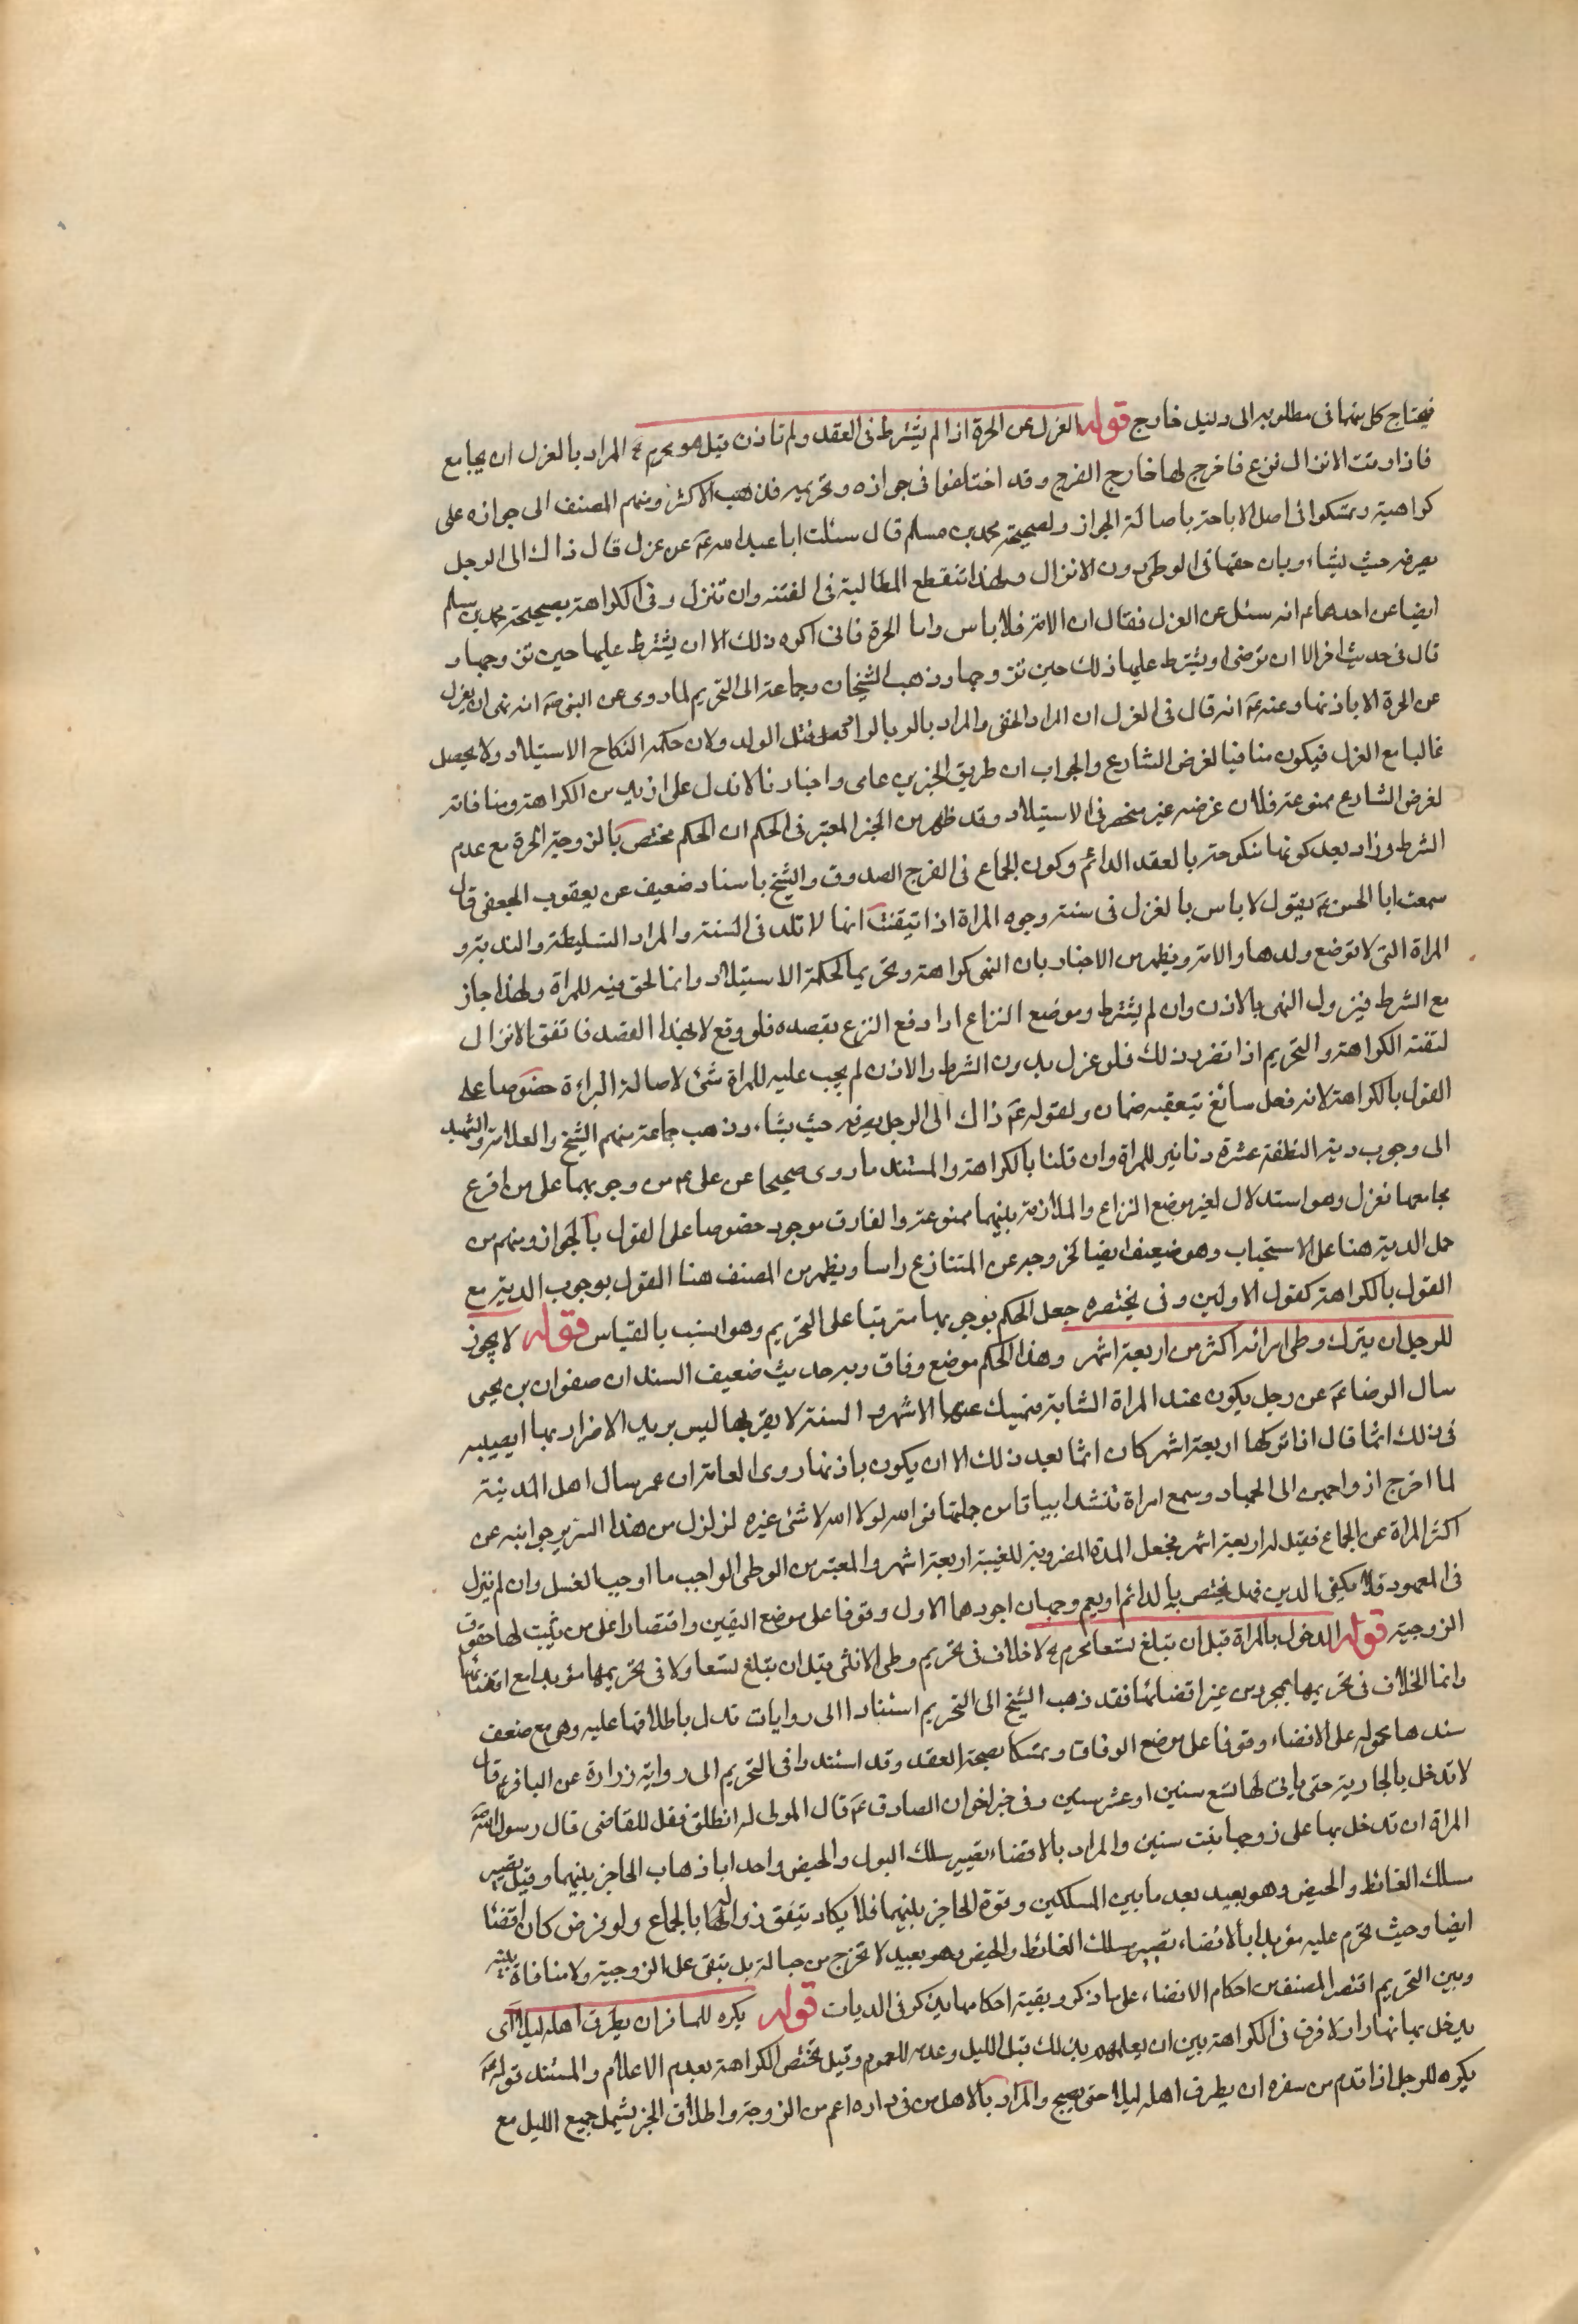 فيحتاج كل منهما في مطلوبه الى دليل خارج قوله العزل عن الحرة اذا لم يشترط في العقد ولم تاذن قيل هو محرم المراد بالعزل ان يجامع
فاذا وقت الانزال نزع فاخرج لها خارج الفرج وقد اختلفوا في جوازه وتحريمه فذهب الاكثر ومنهم المصنف الى جوازه على
كراهية وتمسكوا في اصل الاباحة باصالة الجواز ولصحيحة محمد بن مسلم قال سئلت ابا عبد الله عم عن عزل قال ذاك الى الرجل
يصرفه حيث يشاء وبان حقها في الوطى دون الانزال ولهذا تنقطع المطالبة في الفتنه وان تنزل وفي الكراهة بصحيحة محمد بن مسلم
ايضا عن احدهما عم انه سئل عن العزل فقال ان الامة فلا باس واما الحرة فاني اكره ذلك الا ان يشترط عليها حين تزوجها و
قال في حديث اخر الا ان ترضى او يشترط عليها ذلك حين تزوجها وذهب الشيخان وجماعة الى التحريم لما روى عن النبي ص انه نهى ان يعزل
عن الحرة الا باذنها وعنه ع انه قال في العزل ان المراد الخفي والمراد بالو بالوا قتل الولد ولان حكمه النكاح الاستيلاد ولا يحصل
غالبا مع العزل فيكون منافيا لغرض الشارع والجواب ان طريق الخبرين عامى واخبارنا لا تدل على ازيد من الكراهة ومنافاته
لغرض الشارع ممنوعة فلان غرضه غير منحصر في الاستيلاد وقد ظهر من الخبر المعتبر في الحكم ان الحكم مختص بالزوجة الحرة مع عدم
الشرط وزاد بعد كونها منكوحة بالعقد الدائم وكون الجماع في الفرج الصدوق والشيخ باسناد ضعيف عن يعقوب الجعفي قال
سمعت ابا الحسن ع يقول لا باس بالعزل في ستة وجوه المراة اذا تيقنت انها لا تلد في السنة والمراد السليطة والبذية و
المراة التي لا ترضع ولدها والامة ويظهر من الاخبار بان النهى كراهة وتحريما لحكمة الاستيلاد وانما الحق فيه للمراة ولهذا جاز
مع الشرط فيزول النهى بالاذن وان لم يشترط وموضع النزاع ارادفع النزع بقصده فلو وقع لا بهذا القصد فاتفق الانزال
لنقته الكراهة والتحريم اذا تقرر ذلك فلو عزل بدون الشرط والاذن لم يجب عليه للمراة شئ لاصالة البراءة خصوصا على
القول بالكراهة لانه فعل سائغ يتعقبه ضمان ولقوله عم ذاك الى الرجل يصرفه حيث يشاء وذهب جماعة منهم الشيخ والعلامة والشهيد
الى وجوب دية النطفة عشرة دنانير للمراة وان قلنا بالكراهة والمستند ما روى صحيحا عن على ع من وجوبهما على من افزع
مجامعها فعزل وهو استدلال لغير موضع النزاع والملازمة بينهما ممنوعة والفارق موجود خصوصا على القول بالجواز ومنهم من
حمل الدية هنا على الاستحباب وهو ضعيف ايضا لخروجه عن المتنازع راسا ويظهر من المصنف هنا القول بوجوب الدية مع
القول بالكراهة كقول الاولين وفي مختصره جعل الحكم بوجوبها مترتبا على التحريم وهو انسب بالقياس قوله لا يجوز
للرجل ان يترك وطى امراته اكثر من اربعة اشهر وهذا الحكم موضع وفاق وبه حديث ضعيف السند ان صفوان بن يحيى
سال الرضا عم عن رجل يكون عند المراة الشابة فيمسك عنها الاشهر والسنة لا يقربها ليس يريد الاضرار بها ايصيبه
في ذلك اثما قال اذا تركها اربعة اشهر كان اثما بعد ذلك الا ان يكون باذنها روى العامة ان عمر سال اهل المدينة
لما اخرج ازواجهن الى الجهاد وسمع امراة تنشد ابياتا من جملتها فوالله لولا الله لا شئ غيره لزلزل من هذا السرير جوانبه عن
اكثر المراة عن الجماع فقيل له اربعة اشهر فجعل المدة المضروبة للغيبة اربعة اشهر والمعتبر من الوطى الواجب ما اوجب الغسل وان لم ينزل
في المعهود فلا يكفي الدبر فهل يختص بالدائم او يعم وجهان اجودهما الاول وقوفا على موضع اليقين واقتصارا على من يثبت لها حقوق
الزوجية قوله الدخول بالمراة قبل ان تبلغ تسعا محرم لا خلاف في تحريم وطى الانثى قبل ان تبلغ تسعا ولا في تحريمها مؤبدا مع افضائها
وانما الخلاف في تحريمها بمجرد من غير افضائها فقد ذهب الشيخ الى التحريم استنادا الى روايات تدل باطلاقها عليه وهى مع ضعف
سندها محمولة على الافضاء وقوفا على موضع الوفاق وتمسكا بصحة العقد وقد استند وا في التحريم الى رواية زرارة عن الباقر ع قال
لا تدخل بالجارية حتى ياتي لها تسع سنين او عشر سنين وفي خبر اخر ان الصادق عم قال المولى له انطلق فقل للقاضى قال رسول الله ص
المراة ان تدخل بها على زوجها بنت سنين والمراد بالافضاء تصيير مسلك البول والحيض واحدا باذهاب الحاجز بينهما وقيل تصيير
مسلك الغائط والحيض وهو بعيد بعد ما بين المسلكين وقوة الحاجز بينهما فلا يكاد يتفق زوالها بالجماع ولو فرض كان افضئا
ايضا وحيث تحرم عليه مؤبدا بالافضاء تصيير مسلك الغائط والحيض وهو بعيد لا تخرج من حبالة بل تبقى على الزوجية ولا منافاة بينه
وبين التحريم اقتصر المصنف من احكام الافضاء على ما ذكر وبقية احكامها يذكر في الديات قوله يكره للمسافر ان يطرق اهله ليلا اى
يدخل بها نهارا ولا فرق في الكراهة بين ان يعلمهم بذلك قبل الليل وعدمه للعموم وقيل تختص الكراهة بعدم الاعلام والمستند قوله ع
يكره للرجل اذا قدم من سفره ان يطرق اهله ليلا حتى يصبح والمراد بالاهل من في داره اعم من الزوجة واطلاق الخبر يشمل جميع الليل مع